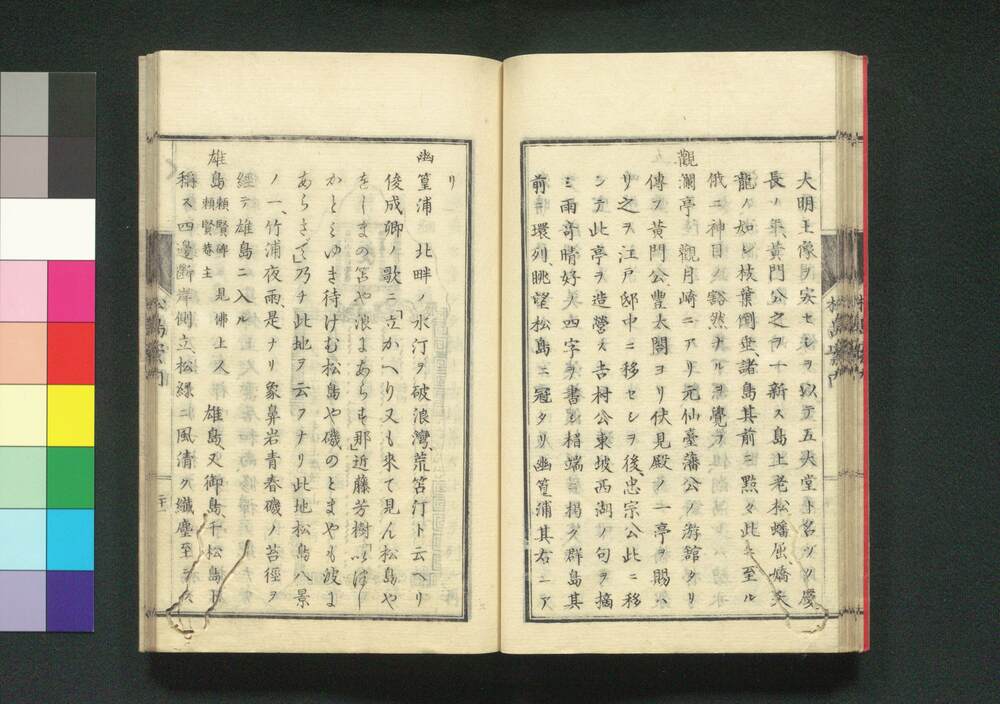 大明王像ヲ安セシヲ以テ五大堂ト名ツク慶
長ノ年、黄門公之ヲ一新ス島上老松蟠屈、嬌夭
龍ノ如シ枝葉倒垂、諸島其前ニ點々此ニ至ル
俄ニ神目ノ豁然ナルヲ覺フ
觀瀾亭 觀月崎ニアリ元仙臺藩公ノ游館タリ
傳フ黄門公、豐太閤ヨリ伏見殿ノ一亭ヲ賜ハ
リ之ヲ江戸邸中ニ移セシヲ後、忠宗公此ニ移
シテ此亭ヲ造營ス吉村公東坡西湖ノ句ヲ摘
ミ雨奇晴好ノ四字ヲ書シ楣端ニ掲ク群島其
前ニ環列、眺望松島ニ冠タリ幽篁浦其右ニア
リ
幽篁浦 北畔ノ水汀ヲ破浪灣、荒笘汀ト云ヘリ
俊成卿ノ歌ニ「立かへり又も來て見ん松島や
をしまの笘や浪にあらすな」近藤芳樹いはし
かとミゆき待けむ松島や磯のとまやも波に
あらさて」乃チ此地ヲ云フナリ此地松島八景
ノ一、竹浦夜雨、是ナリ象鼻岩青春磯ノ苔徑ヲ
經テ雄島ニ入ル
雄島 頼賢碑 見佛上人 頼賢菴主 雄島、又御島、千松島ト
稱ス四邊斷岸側立、松緑ニ風清ク纖塵至ラス
松島案内